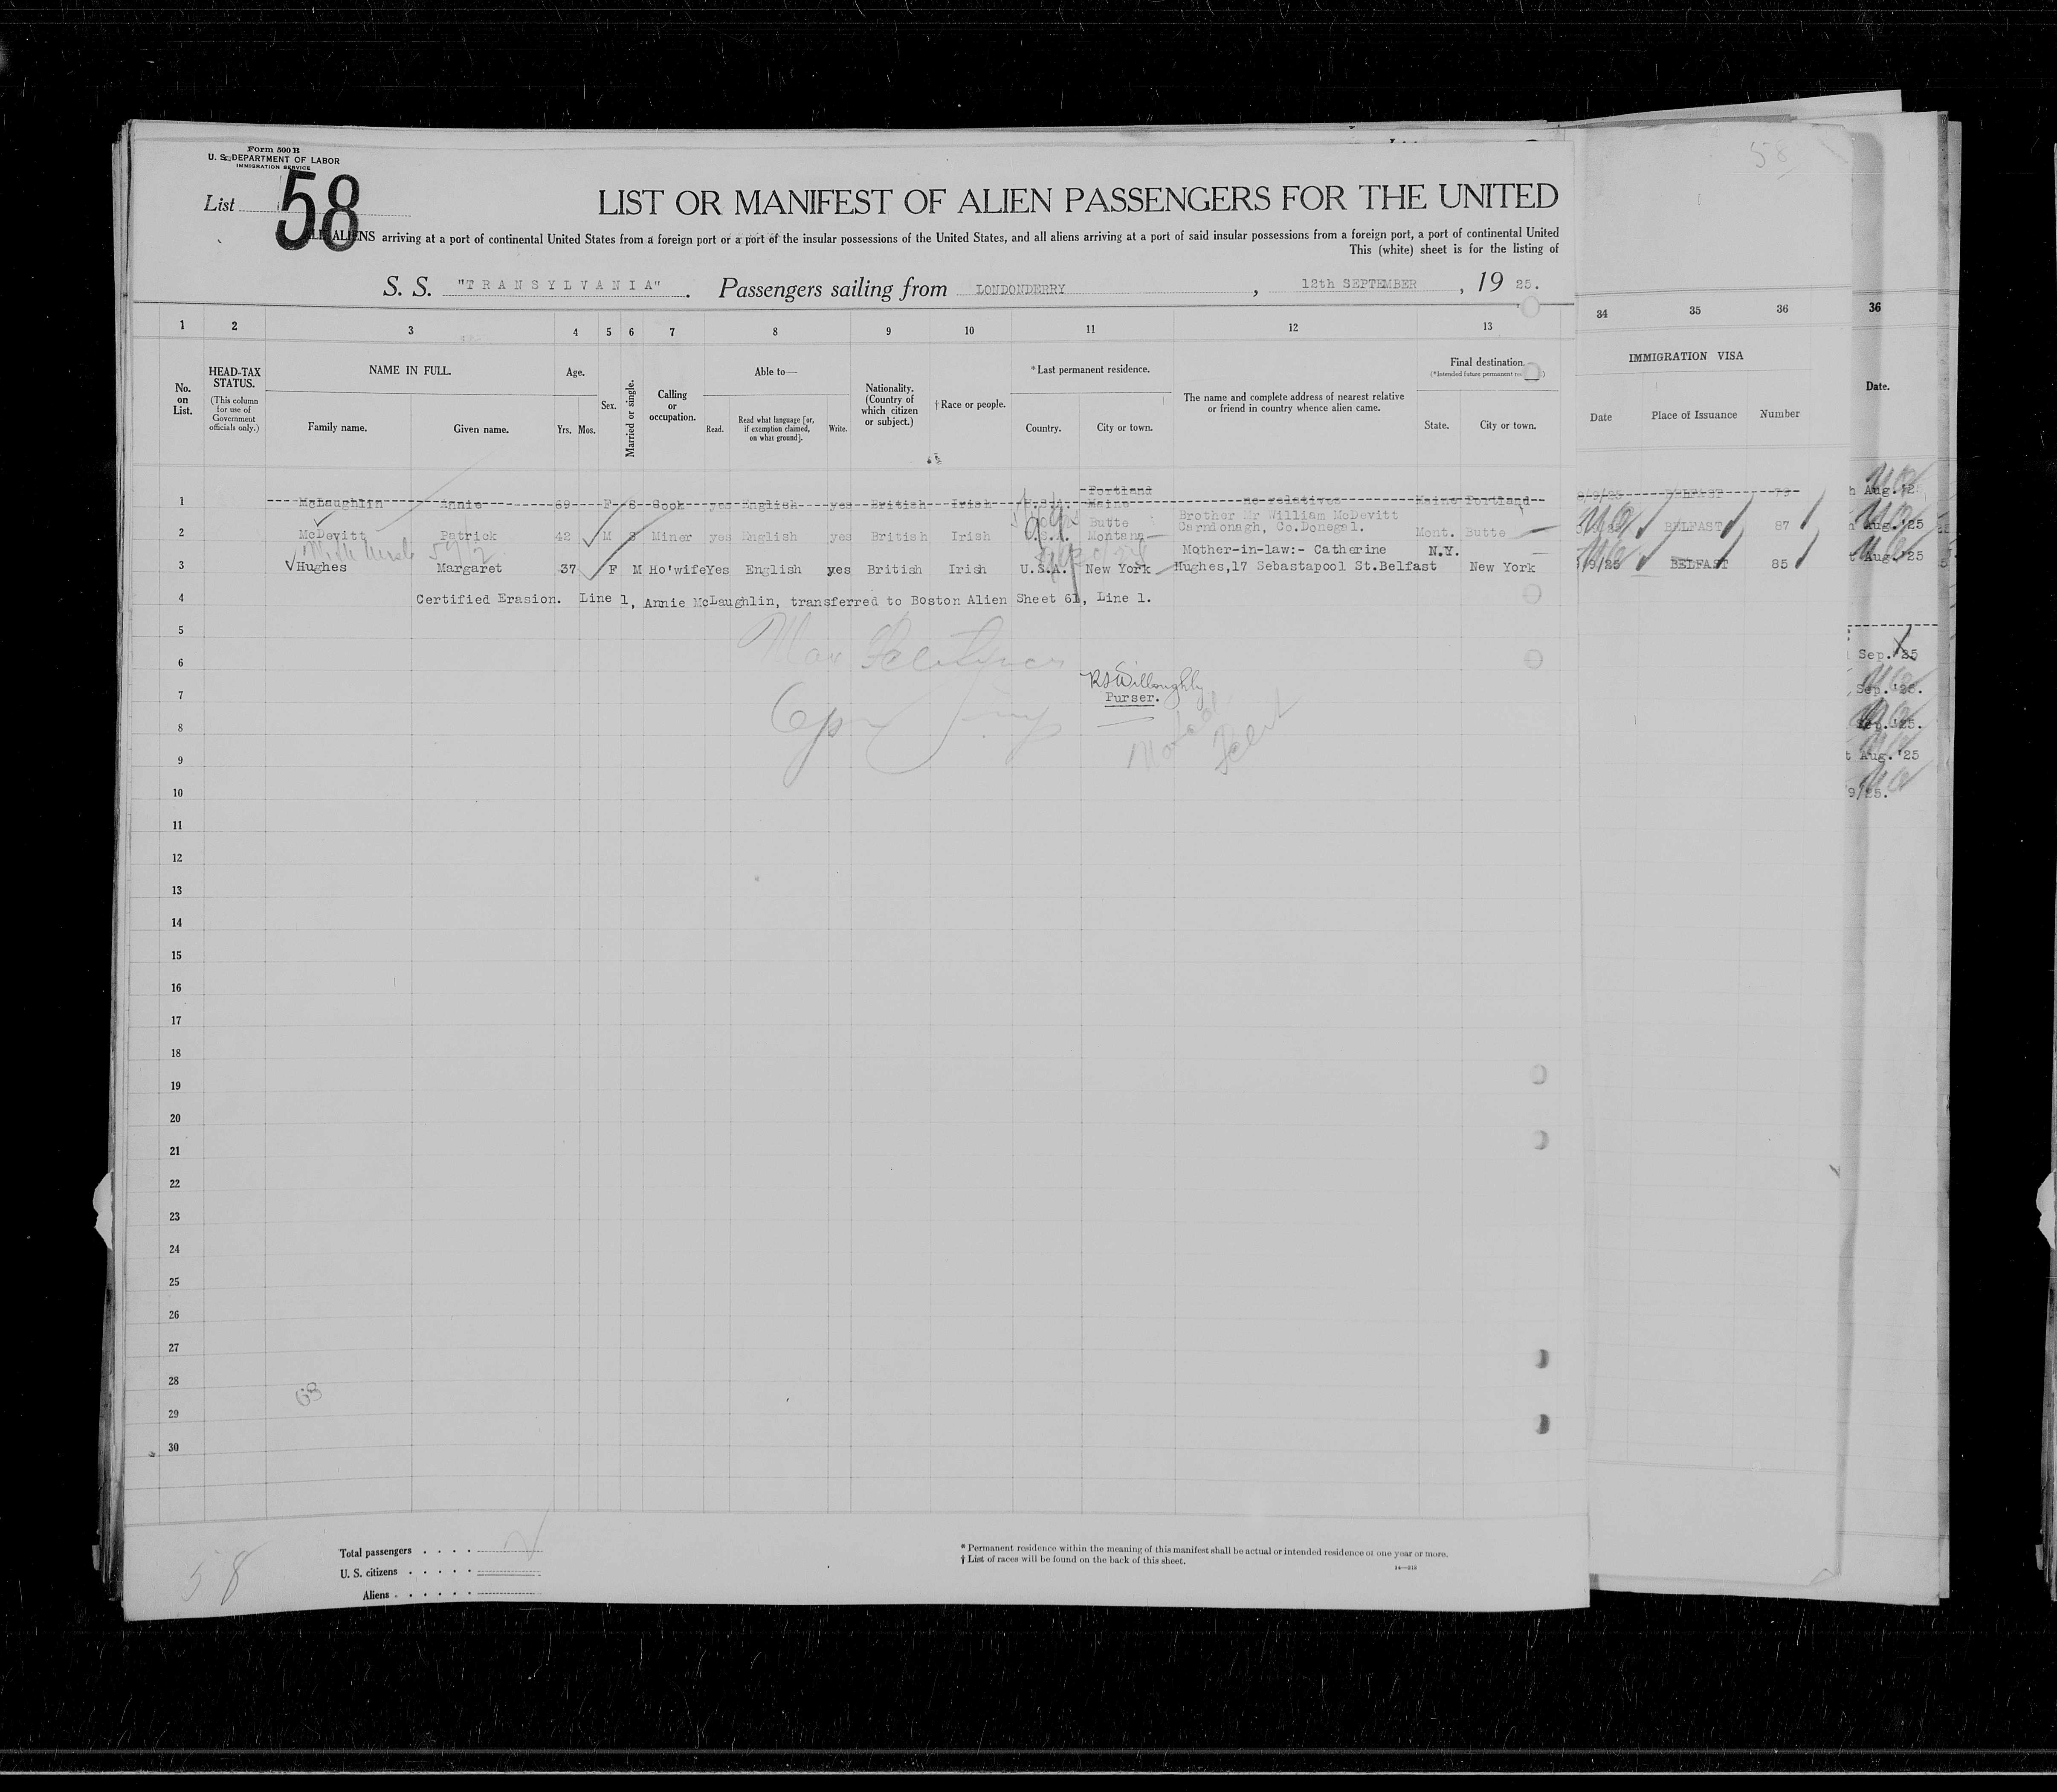 Form 500 B
U. S. DEPARTMENT OF LABOR
IMMIGRATION SERVICE
List 58
LIST OR MANIFEST OF ALIEN PASSENGERS FOR THE UNITED
ALL ALIENS arriving at a port of continental United States from a foreign port or a port of the insular possessions of the United States, and all aliens arriving at a port of said insular possessions from a foreign port, a port of continental United
This (white) sheet is for the listing of
S. S. "TRANSYLVANIA". Passengers sailing from LONDONDERRY, 12th SEPTEMBER, 19 25.
58
1 2 3 4 5 6 7 8 9 10 11 12 13 34 35 36 36
No. on List.
HEAD-TAX STATUS.
(This column for use of Government officials only.)
NAME IN FULL.
Family name. Given name.
Age.
Yrs. Mos.
Sex.
Married or single.
Calling or occupation.
Able to—
Read. Read what language [or, if exemption claimed, on what ground]. Write.
Nationality. (Country of which citizen or subject.)
† Race or people.
* Last permanent residence.
Country. City or town.
The name and complete address of nearest relative or friend in country whence alien came.
Final destination.
State. City or town.
IMMIGRATION VISA
Date Place of Issuance Number
Date.
1 McLaughlin Annie 69 F S Cook yes English yes British Irish U.S.A. Portland Maine no relatives Maine Portland BELFAST
2 McDevitt Patrick 42 M S Miner yes English yes British Irish U.S.A. Butte Montana Brother Mr William McDevitt Carndonagh, Co.Donegal. Mont. Butte BELFAST 87
3 Hughes Margaret 37 F M Ho'wife Yes English yes British Irish U.S.A. New York Mother-in-law:- Catherine Hughes,17 Sebastapool St.Belfast N.Y. New York BELFAST 85
4 Certified Erasion. Line 1, Annie McLaughlin, transferred to Boston Alien Sheet 61, Line 1.
5
6
7
Purser.
8
9
10
11
12
13
14
15
16
17
18
19
20
21
22
23
24
25
26
27
28
29
30
Aug.'25
Aug.'25
Sep.'25
Sep.'25.
Sep.'25.
Aug.'25
9/25.
68
58
Total passengers
U. S. citizens
Aliens
* Permanent residence within the meaning of this manifest shall be actual or intended residence of one year or more.
† List of races will be found on the back of this sheet.